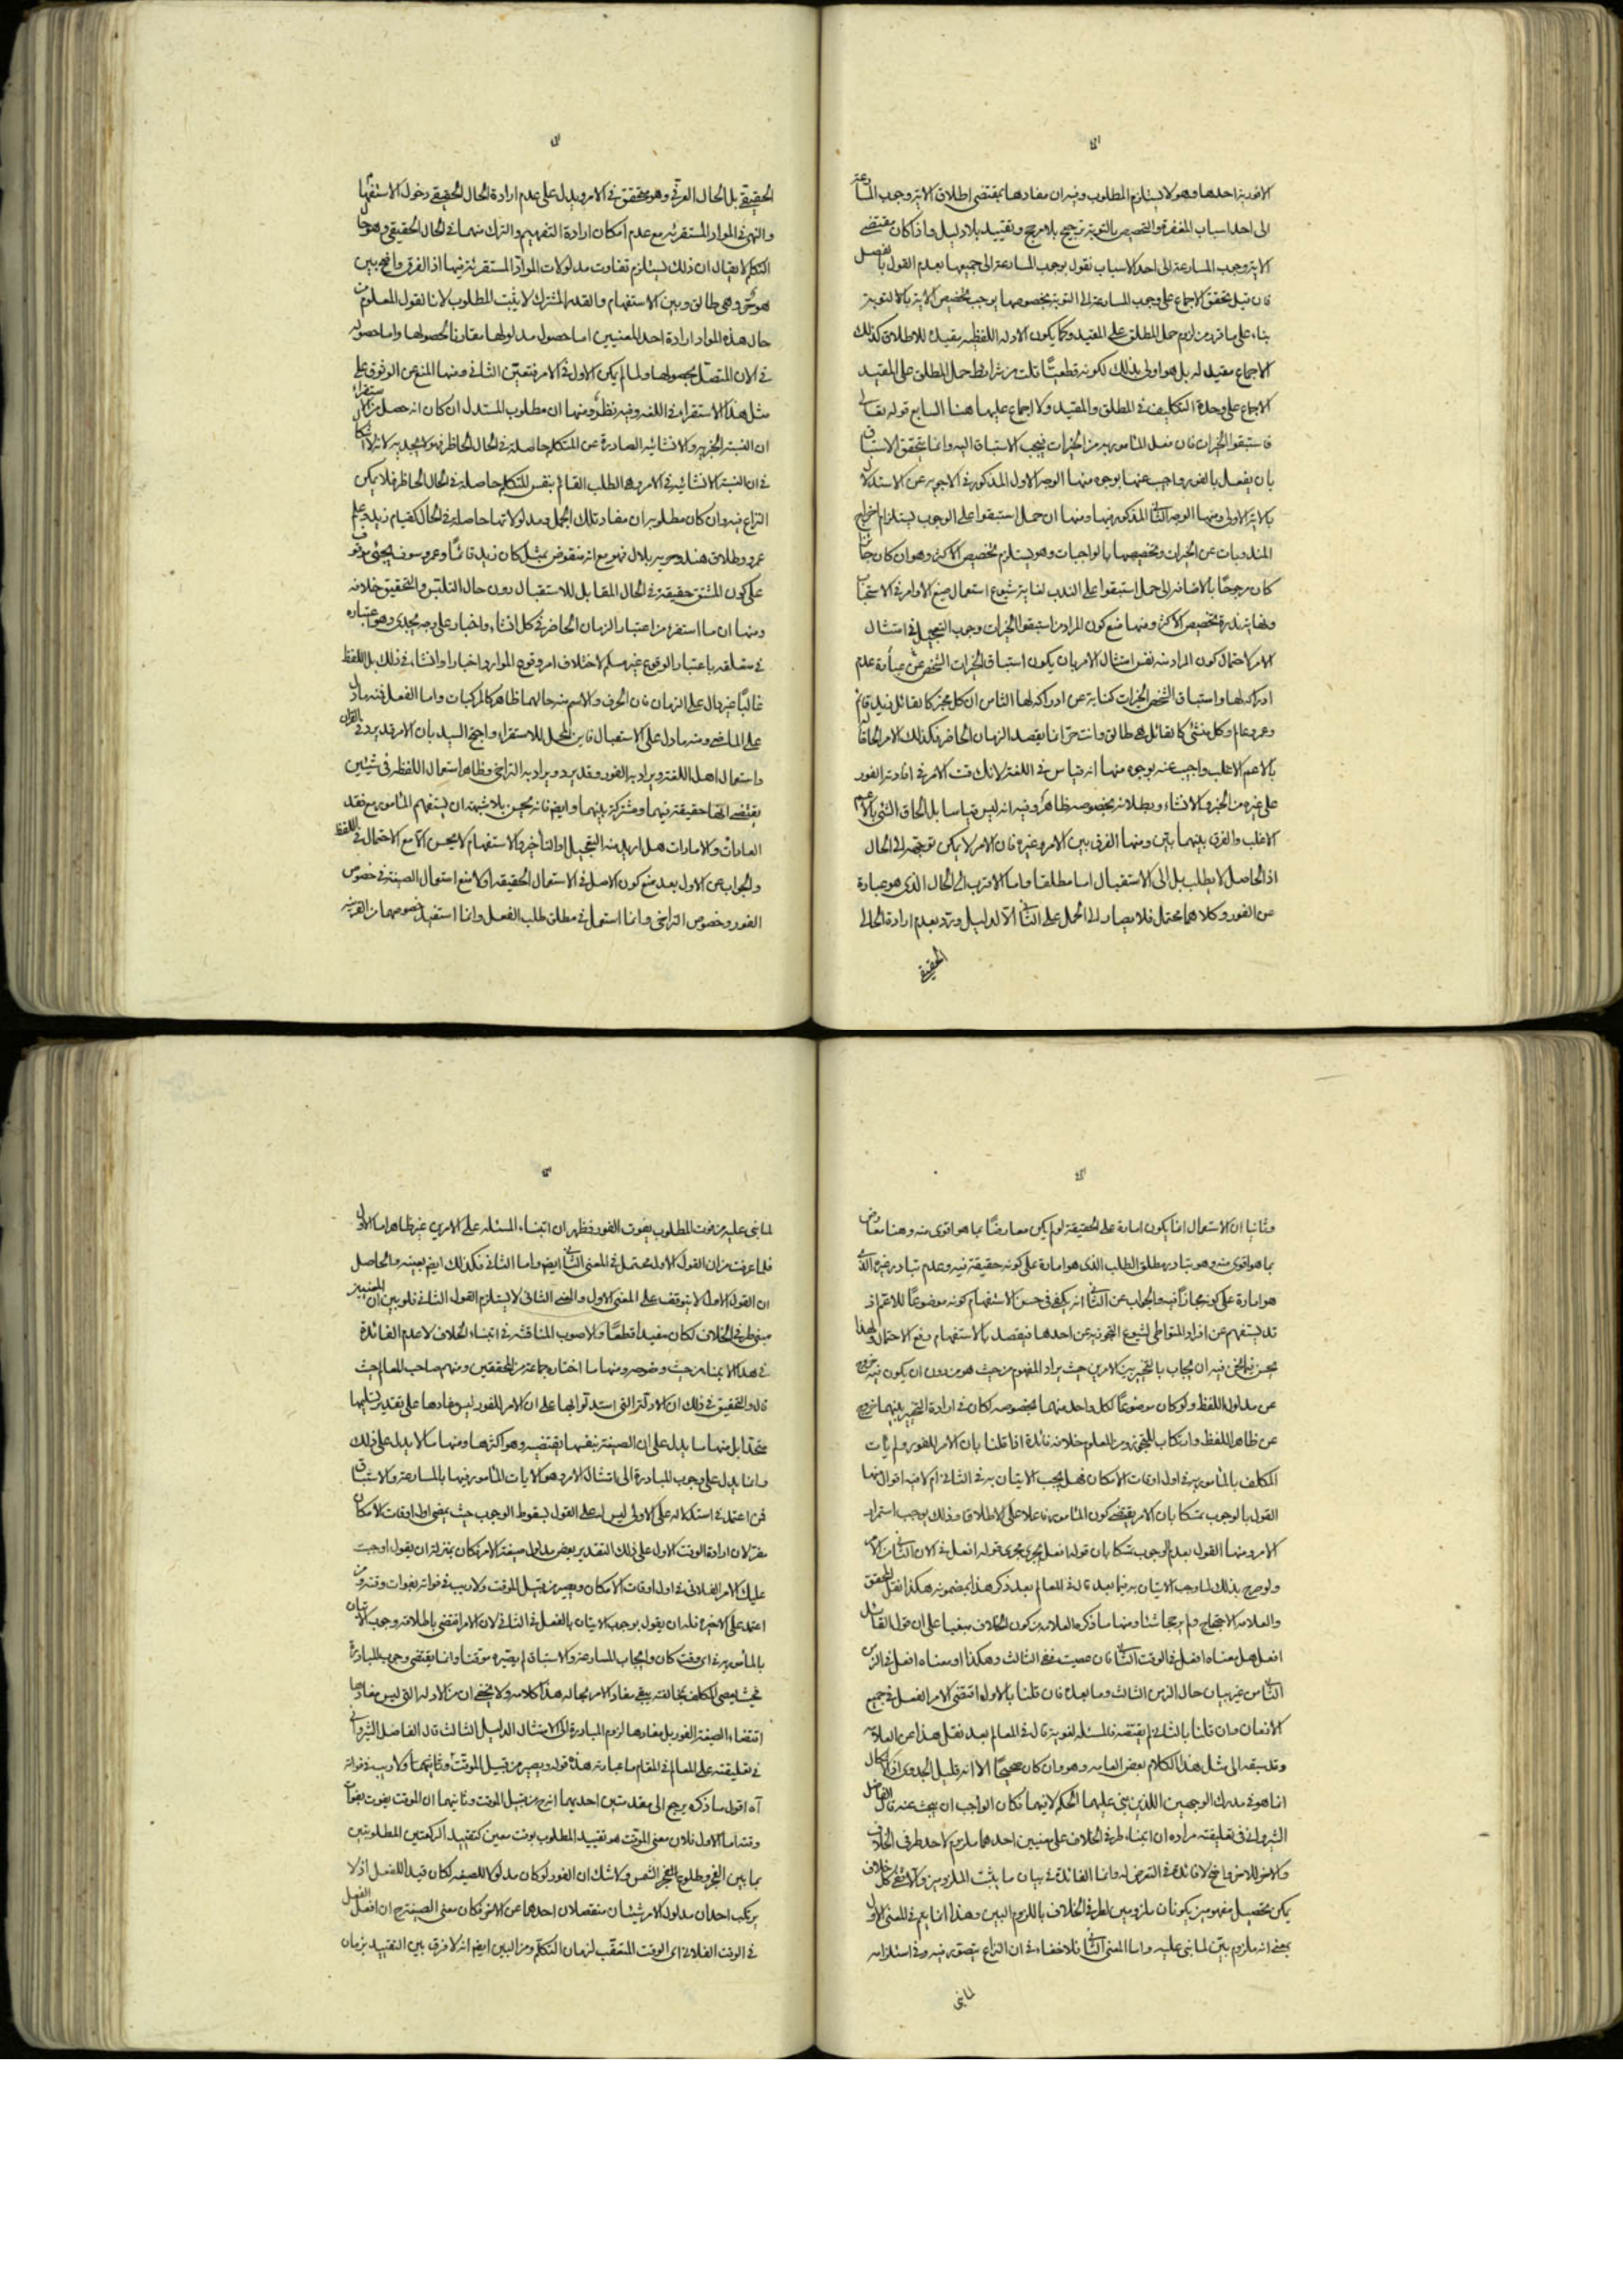 الافورية احدها وهو لا يستلزم المطلوب وفيه ان مفادها بمقتضى اطلاق الاية وجوب المسارعة
الى احد اسباب المغفرة والتخصيص بالتوبة ترجيح بلا مرجح وتقييد بلا دليل واذا كان مقتضى
الاية وجوب المسارعة الى احد الاسباب نقول بوجوب المسارعة الى جميعها بعدم القول بالفصل
فان قيل تحقق الاجماع على وجوب المسارعة الى التوبة بخصوصها يوجب تخصيص الاية بالتوبة
بناء على ما قرر من لزوم حمل المطلق على المقيد وكما يكون الادلة اللفظية مقيدة للاطلاق كذلك
الاجماع مقيد له بل هو اولى بذلك لكونه قطعيّا قلت من شرائط حمل المطلق على المقيد
الاجماع على وحدة التكليف في المطلق والمقيد ولا اجماع عليها هنا السابع قوله تعالى
فاستبقوا الخيرات فان فعل المأمور به من الخيرات فيجب الاستباق اليه وانما يتحقق الاستباق
بان يفعل بالفور واجيب عنها بوجوه منها الوجه الاول المذكور في الاجوبة عن الاستدلال
بالاية الاولى ومنها الوجه الثاني المذكور فيها ومنها ان حمل استبقوا على الوجوب يستلزم اخراج
المندوبات عن الخيرات وتخصيصها بالواجبات وهو يستلزم تخصيص الاكثر وهو ان كان جائزا
كان مرجوحًا بالاضافة الى حمل استبقوا على الندب لغاية شيوع استعمال صيغ الاوامر في الاستحباب
وغاية ندرة تخصيص الاكثر ومنها منع كون المراد من استبقوا الخيرات وجوب التعجيل في امتثال
الامر لاحتمال كون المراد منه نفس امتثال الامر بان يكون استباق الخيرات الشخص عن عبارة عدم
ادراكه لها واستباق الشخص الخيرات كناية عن ادراكه لها الثامن ان كل مخبر كالقائل زيد قائم
وعمرو عالم وكل منشئ كالقائل هي طالق وانت حرّ انما يقصد الزمان الحاضر فكذلك الامر الحاقا
بالاعم الاغلب واجيب عنه بوجوه منها انه قياس في اللغة لانك قست الامر في افادته الفور
على غيره من الخبر والانشاء وبطلانه بخصوصه ظاهر وفيه انه ليس قياسا بل الحاق الشئ بالاعم
الاغلب والفرق بينهما بيّن ومنها الفرق بين الامر وغيره فان الامر لا يمكن توجهه الى الحال
اذ الحاصل لا يطلب بل الى الاستقبال اما مطلقا واما الاقرب الى الحال الذي هو عبارة
عن الفور وكلاهما محتمل فلا يصار الى الحمل على الثاني الّا لدليل ويرد بعدم ارادة الحال
الحقيقي
الحقيقي بل الحال العرفي وهو متحقق في الامر ويدل على عدم ارادة الحال الحقيقي دخول الاستفهام
والنهي في الموارد المستقرئة مع عدم امكان ارادة التفهيم والترك منهما في الحال الحقيقي وهو حال
التكلم لا يقال ان ذلك يستلزم تفاوت مدلولات المواد المستقرئة فيها اذ الفرق واضح بين
هو حرّ وهي طالق وبين الاستفهام والقدر المشترك لا يثبت المطلوب لانا نقول المعلوم من
حال هذه المواد ارادة احد المعنيين اما حصول مدلولها مقارنا لحصولها واما حصوله
في الان المتصل بحصولها ولما لم يكن الاول في الامر فتعيّن الثاني ومنها المنع عن الوثوق على
مثل هذا الاستقراء في اللغة وفيه نظر ومنها ان مطلوب المستدل ان كان انه حصل من الاستقراء
ان النسبة الخبرية والانشائية الصادرة عن المتكلم حاصلة في الحال الحاضر فهو لا يجديه لانه لا اشكال
في ان النسبة الانشائية في الامر وهي الطلب القائم بنفس المتكلم حاصلة في الحال الحاضر فلا يمكن
النزاع فيه وان كان مطلوبه ان مفاد تلك الجمل ومدلولاتها حاصلة في الحال كقيام زيد وعلم
عمرو وطلاق هند وحرية بلال فهو مع انه منقوض بمثل كان زيد قائمًا وعمرو سوف يجئ موقوف
على كون المشتق حقيقة في الحال المقابل للاستقبال دون حال التلبس والتحقيق خلافه
ومنها ان ما استقرء من اعتبار الزمان الحاضر في كل انشاء واخبار على وجه يجدي وهو اعتباره
في متعلقه باعتبار الوقوع غير مسلم لاختلاف امر وقوع الموارد اخبارا وانشاء في ذلك بل اللفظ
غالبًا غير دال على الزمان فان الحرف والاسم منه حالهما ظاهر كالمركبات واما الفعل فمنه ما دل
على الماضي ومنه ما دل على الاستقبال فاين المحل للاستقراء واحتج السيد بان الامر قد يرد في القران
واستعمال اهل اللغة ويراد به الفور وقد يرد ويراد به التراخي وظاهر استعمال اللفظة في شيئين
يقتضي انها حقيقة فيهما ومشتركة بينهما وايضا فانه يحسن بلا شبهة ان يستفهم المأمور مع فقد
العادات والامارات هل اريد منه التعجيل او التأخير والاستفهام لا يحسن الّا مع الاحتمال في اللفظ
والجواب عن الاول بعد منع كون الاصل في الاستعمال الحقيقة اولا منع استعمال الصيغة في خصوص
الفور وخصوص التراخي وانما استعمل في مطلق طلب الفعل وانما استفيد خصوصهما من القرينة
وثانيا ان الاستعمال انما يكون امارة على الحقيقة لو لم يكن معارضًا بما هو اقوى منه وهنا معارض
بما هو اقوى منه وهو تبادر مطلق الطلب الذي هو امارة على كونه حقيقة فيه وعدم تبادر غيره الذي
هو امارة على كونه مجازًا فيه والجواب عن الثاني انه يكفي في حسن الاستفهام كونه موضوعًا للاعم اذ
قد يستفهم عن افراد المتواطي لشيوع التجوز به عن احدها فيقصد بالاستفهام رفع الاحتمال ولهذا
يحسن فيما نحن فيه ان يجاب بالتخيير بين الامرين حيث يراد المفهوم من حيث هو من دون ان يكون فيه خروج
عن مدلول اللفظ ولو كان موضوعًا لكل واحد منهما بخصوصه لكان في ارادة التخيير بينهما خروج
عن ظاهر اللفظ وارتكاب للتجوز ومن المعلوم خلافه فائدة اذا قلنا بان الامر للفور ولم يأت
المكلف بالمأمور به في اول اوقات الامكان فهل يجب الاتيان به في الثاني ام لا فيه اقوال منها
القول بالوجوب تمسكا بان الامر يقتضي كون المأمور فاعلا على الاطلاق وذلك يوجب استمرار
الامر ومنها القول بعدم الوجوب تمسكا بان قوله افعل يجري مجرى قوله افعل في الان الثاني من الامر
ولو صرح بذلك لما وجب الاتيان به فيما بعد قال في المعالم بعد ذكر هذا بمضمونه هكذا نقل المحقق
والعلامة الاحتجاج ولم يرجحا شيئا ومنها ما ذكره العلامة من كون الخلاف مبنيا على ان قول القائل
افعل هل معناه افعل في الوقت الثاني فان عصيت ففي الثالث وهكذا او معناه افعل في الزمن
الثاني من غير بيان حال الزمن الثالث وما بعده فان قلنا بالاول اقتضى الامر الفعل في جميع
الازمان وان قلنا بالثاني لم يقتضه فالمسئلة لغوية قال في المعالم بعد نقل هذا عن العلامة
وقد سبقه الى مثل هذا الكلام بعض العامة وهو وان كان صحيحًا الا انه قليل الجدوى اذ الاشكال
انما هو في مدرك الوجهين اللذين بنى عليهما الحكم لا فيهما فكان الواجب ان يبحث عنه قال الفاضل
الشرواني في تعليقته مراده ان ابتناء طرفي الخلاف على معنيين احدهما ملزوم لاحد طرفي الخلاف
والاخر للاخر واضح لا فائدة في التعرض له وانما الفائدة في بيان ما يثبت الملزومين
يمكن تحصيل مفهومين يكونان ملزومين لطرفي الخلاف باللزوم البين وهذا انما يتم في المعنى الاول
بمعنى انه ملزوم بيّن لما بنى عليه واما المعنى الثاني فلا خفاء في ان النزاع يتصور فيه وفي استلزامه
لما بنى
لما بنى عليه من فوت المطلوب بفوت الفور فظهر ان ابتناء المسئلة على الامرين غير ظاهر اما الاول
فلما عرفت من ان القول الاول محتمل في المعنى الثاني ايضا واما الثاني فكذلك ايضا بعينه والحاصل
ان القول الاول لا يتوقف على المعنى الاول والمعنى الثاني لا يستلزم القول الثاني فلو بين ان المعنيين
مبنى طرفي الخلاف لكان مفيدا قطعًا والاصوب المناقشة في ابتناء الخلاف لا عدم الفائدة
في هذا الابتناء من حيث وضوحه ومنها ما اختاره جماعة من المحققين ومنهم صاحب المعالم حيث
قال والتحقيق في ذلك ان الادلة التي استدلوا بها على ان الامر للفور ليس مفادها على تقدير تسليمها
متحدا بل منها ما يدل على ان الصيغة بنفسها يقتضيه وهو اكثرها ومنها ما لا يدل على ذلك
وانما يدل على وجوب المبادرة الى امتثال الامر وهو الايات المأمور فيها بالمسارعة والاستباق
فمن اعتمد في استدلاله على الاولى ليس له على القول بسقوط الوجوب حيث يمضي اول اوقات الامكان
مفرّ لان ارادة الوقت الاول على ذلك التقدير بعض مدلول صيغة الامر فكان بمنزلة ان يقول اوجبت
عليك الامر الفلاني في اول اوقات الامكان ويصير من قبيل الموقت ولا ريب في فواته بفوات وقته ومن
اعتمد على الاخيرة فله ان يقول بوجوب الاتيان بالفعل في الثاني لان الامر اقتضى باطلاقه وجوب الاتيان
بالمأمور به في اي وقت كان وايجاب المسارعة والاستباق لم يصيّره موقتا وانما يقتضي وجوب المبادرة
فحيث يعصي المكلف بمخالفته يبقى مفاد الامر بحاله هذا كلامه ولا يخفى ان من الادلة التي ليس مفادها
اقتضاء الصيغة الفور بل مفادها لزوم المبادرة الى الامتثال الدليل الثالث قال الفاضل الشرواني
في تعليقته على المعالم في المقام ما عبارته هذه قوله ويصير من قبيل الموقت ولا ريب في فواته
آه اقول ما ذكره يرجع الى مقدمتين احديهما انه ح من قبيل الموقت وثانيهما ان الموقت يفوت بفوات
وقته اما الاول فلان معنى الموقت هو تقييد المطلوب بوقت معين كتقييد الركعتين المطلوبتين
بما بين الفجر وطلوع الشمس ولا شك ان الفور لو كان مدلولا للصيغة لكان قيدا للفعل اذ لا
يرتكب احد ان مدلول الامر شيئان منفصلان احدهما عن الاخر فكان معنى الصيغة ح ان افعل الفعل
في الوقت الفلاني اي الوقت المتعقّب لزمان التكلم ومن البين ايضا انه لا فرق بين التقييد بزمان